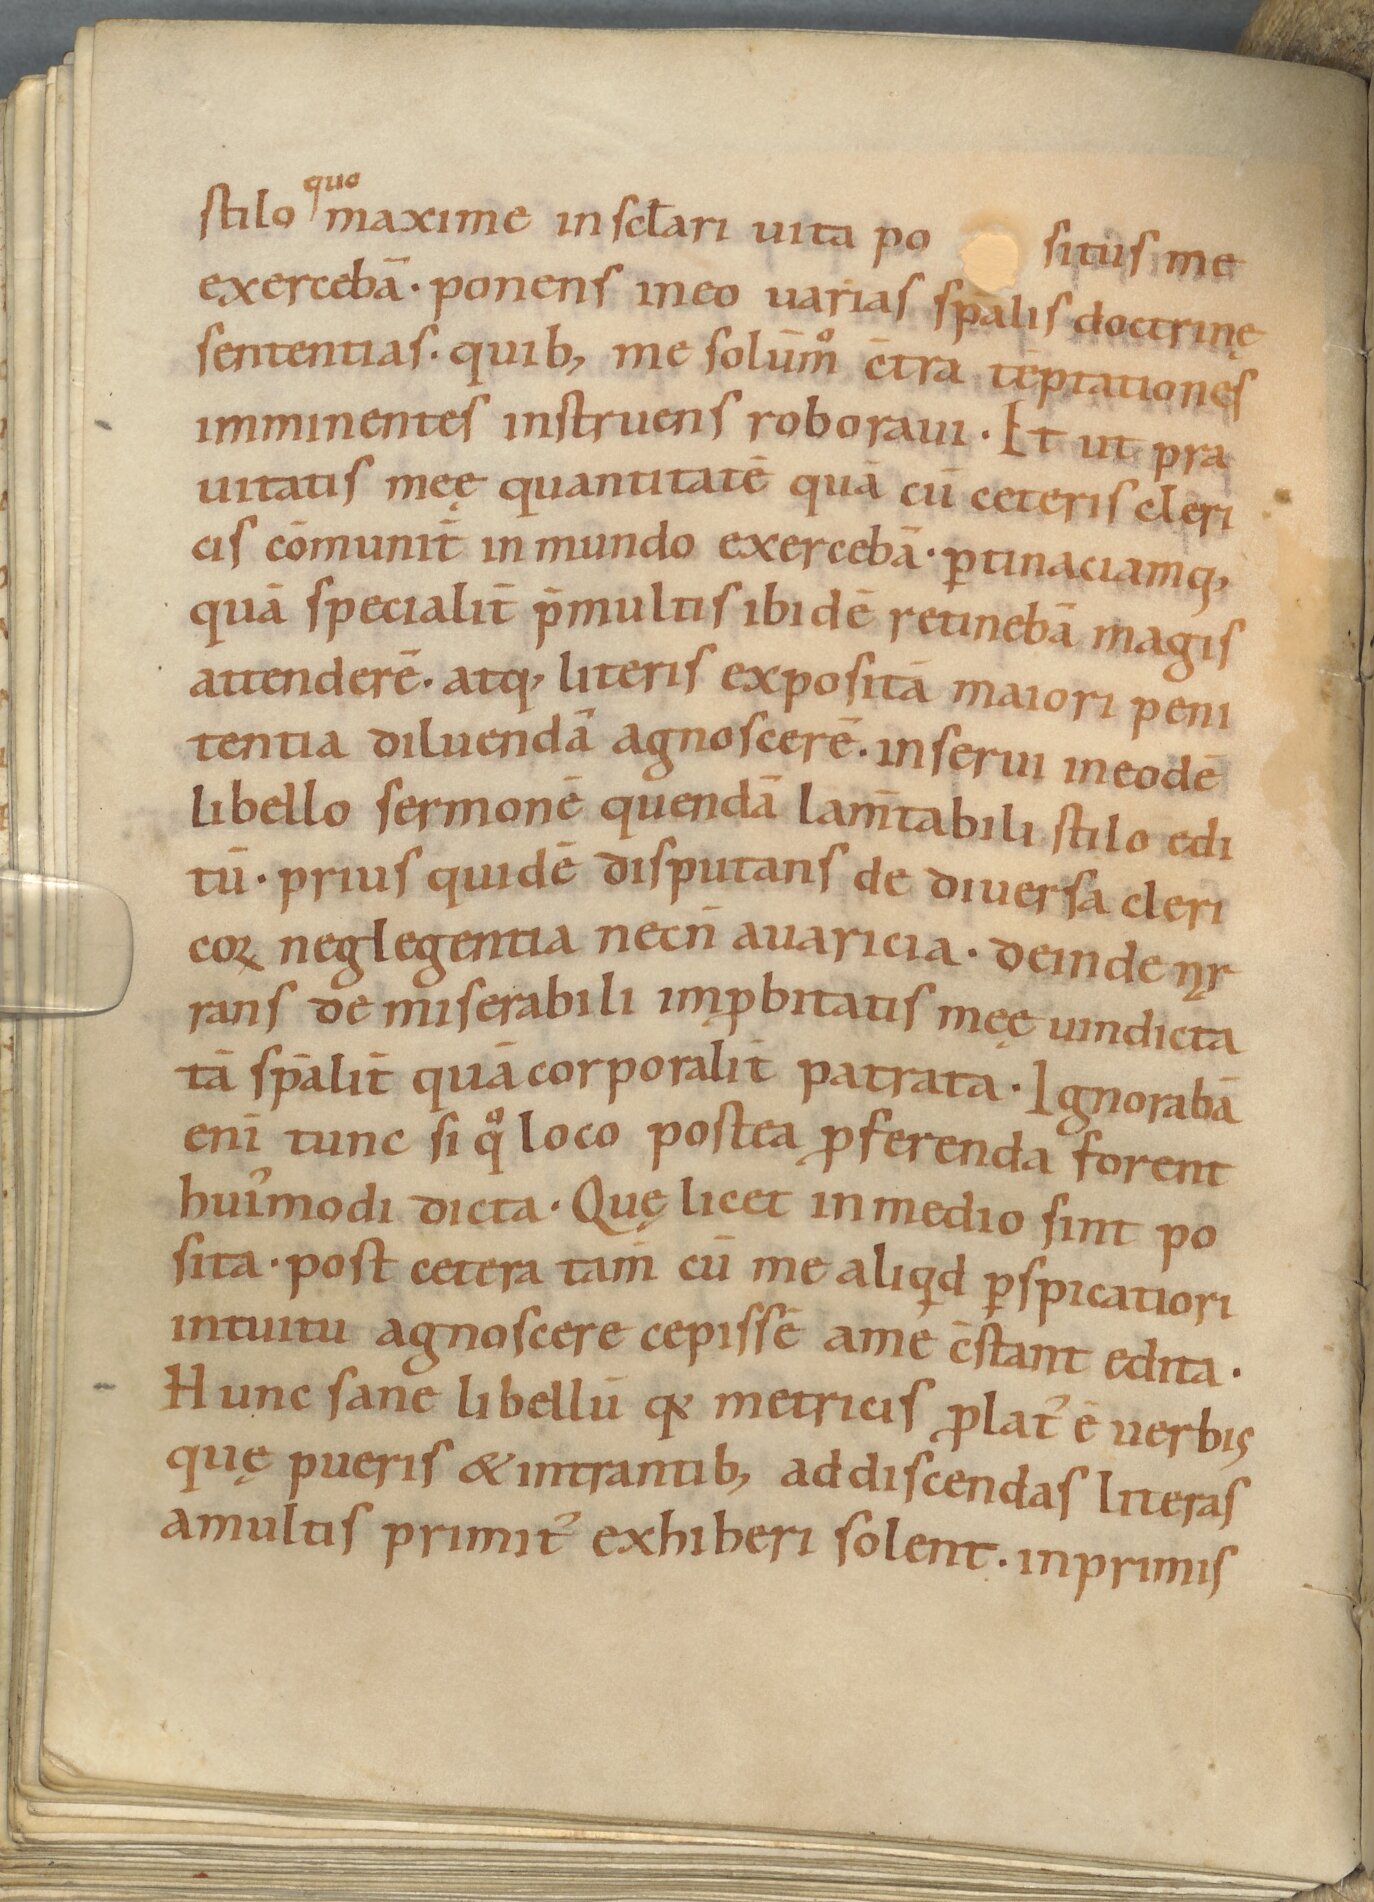 quo
stilo maxime in scłari uita po situs me
exercebā · ponens in eo uarias sp̄alis doctrinę
sententias · quib, me solūm̊ c̄tra tēptationes
imminentes instruens roboraui · Et ut pra
uitatis męę quantitatē quā cū ceteris cleri
cis cōmunit̄ in mundo exercebā · ꝑtinaciamq,
quā specialit̄ p̄ multis ibidē retinebā magis
attenderē · atq, literis expositā maiori peni
tentia diluendā agnoscerē · inserui in eodē
libello sermonē quendā lam̄tabili stilo edi
tū · prius quidē disputans de diuersa cleri
coꝝ neglegentia necn̄ auaricia · deinde nar
rans de miserabili imꝓbitatis męę uindicta
tā sp̄alit̄ quā corporalit̄ patrata · Ignorabā
enī tunc si q̊ loco postea ꝓferenda forent
hui᾽modi dicta · Quę licet in medio sint po
sita · post cetera tam̄ cū me aliqd ꝑspicatiori
intuitu agnoscere cepissē a me c̄stant edita ·
Hunc sane libellū qa metricis ꝓlat᾽ ē uerbis
quę pueris & intrantib, ad discendas literas
a multis primit᾽ exhiberi solent · in primis